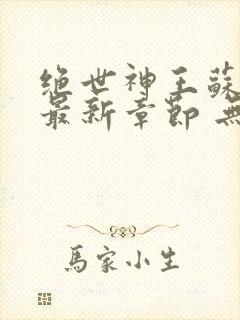 绝世神王蘇
最新章節 無
馬家小生